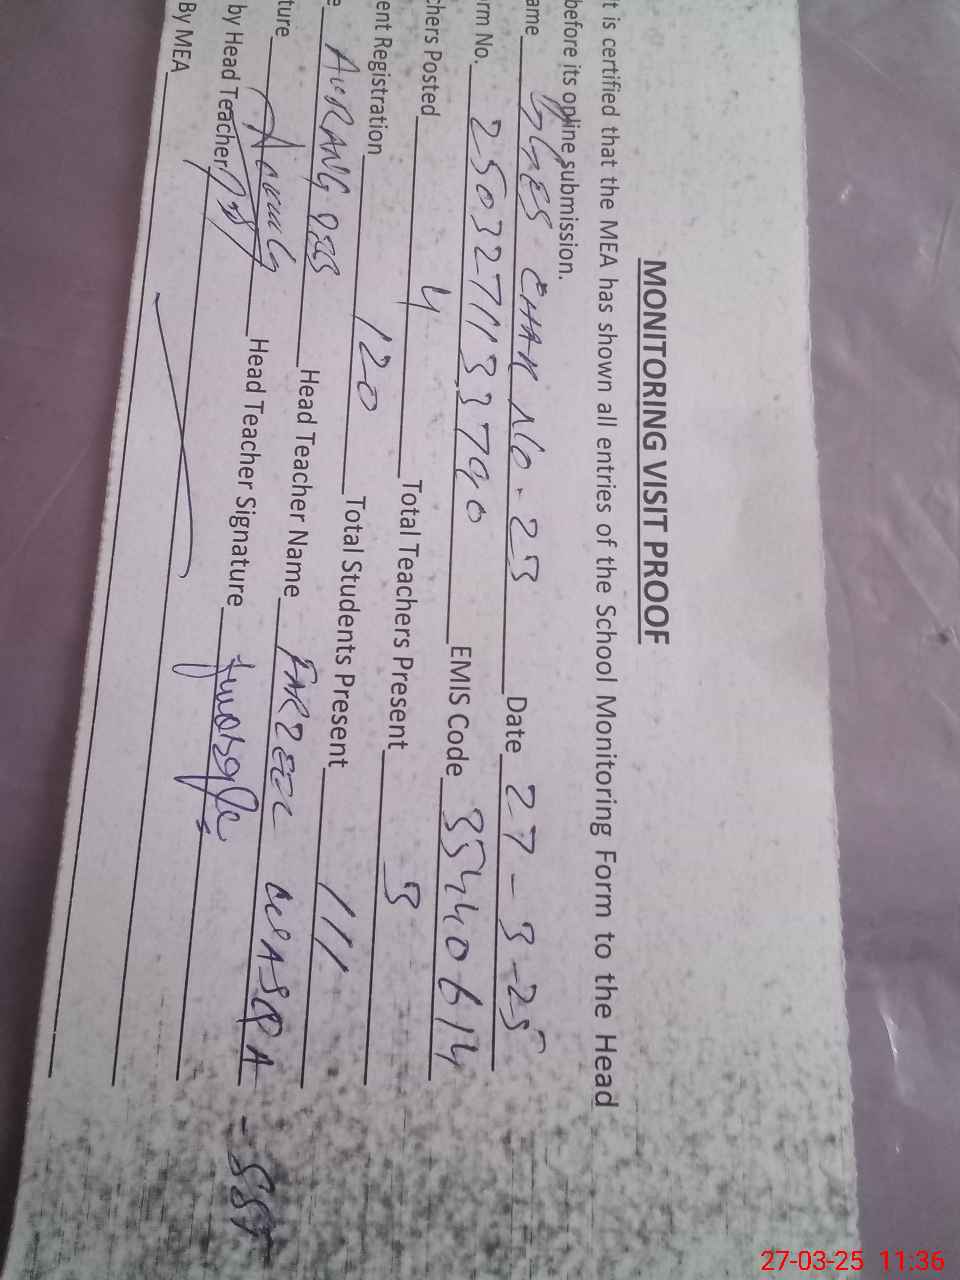 MONITORING VISIT PROOF
t is certified that the MEA has shown all entries of the School Monitoring Form to the Head
before its online submission.
ame GGES CHAK No. 23 Date 27-3-25
rm No. 2503271133790 EMIS Code 35440614
chers Posted 4 Total Teachers Present 3
ent Registration 120 Total Students Present 111
e AURANG ZEB Head Teacher Name -SST
ture Head Teacher Signature
by Head Teacher
By MEA
27-03-25 11:36